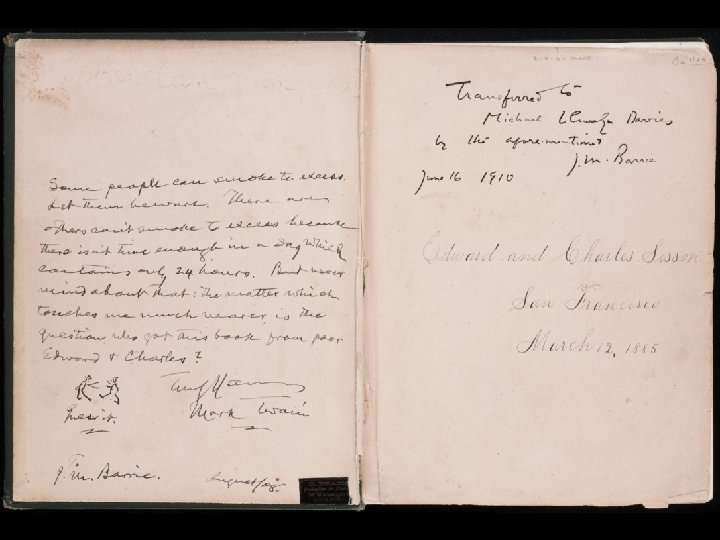 Some people can smoke to excess.
Let them beware. There are
others can't smoke to excess because
there isn't time enough in a day which
contains only 24 hours. But never
mind about that: the matter which
touches me much nearer is the
question, who got this book from poor
Edward & Charles?
Mark Twain
To
J. M. Barrie.
Transferred to
Michael Davies
by the afore-mentioned
J. M. Barrie
June 16 1910
Edward and Charles Sisson
San Francisco
March 12, 1885